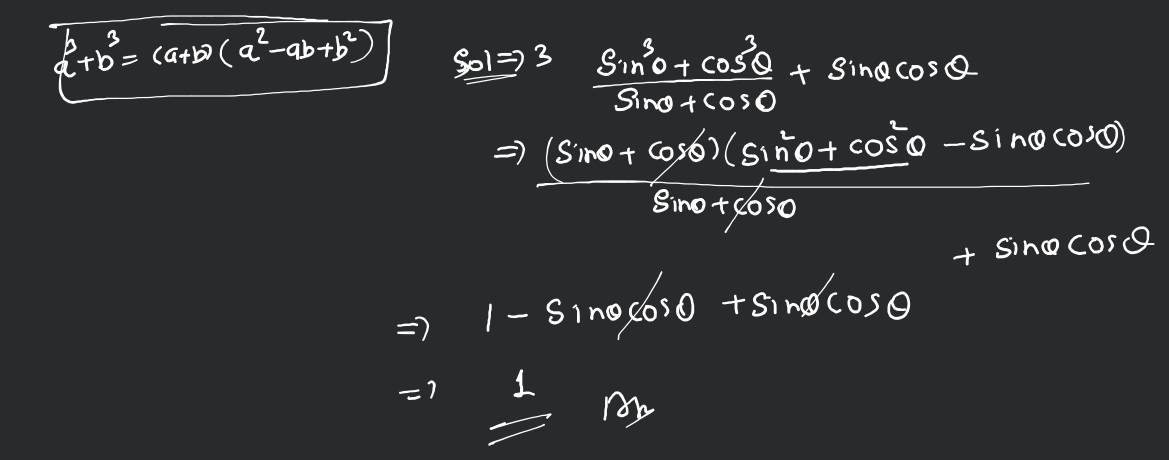 a³+b³ = (a+b) (a²-ab+b²)
Sol ⇒ 3 (Sin³θ + cos³θ)/(Sinθ + cosθ) + Sinθ cosθ
⇒ (Sinθ + cosθ)(Sin²θ + cos²θ - Sinθ cosθ)/(Sinθ + cosθ)
+ Sinθ cosθ
⇒ 1 - Sinθ cosθ + Sinθ cosθ
⇒ 1 Ans